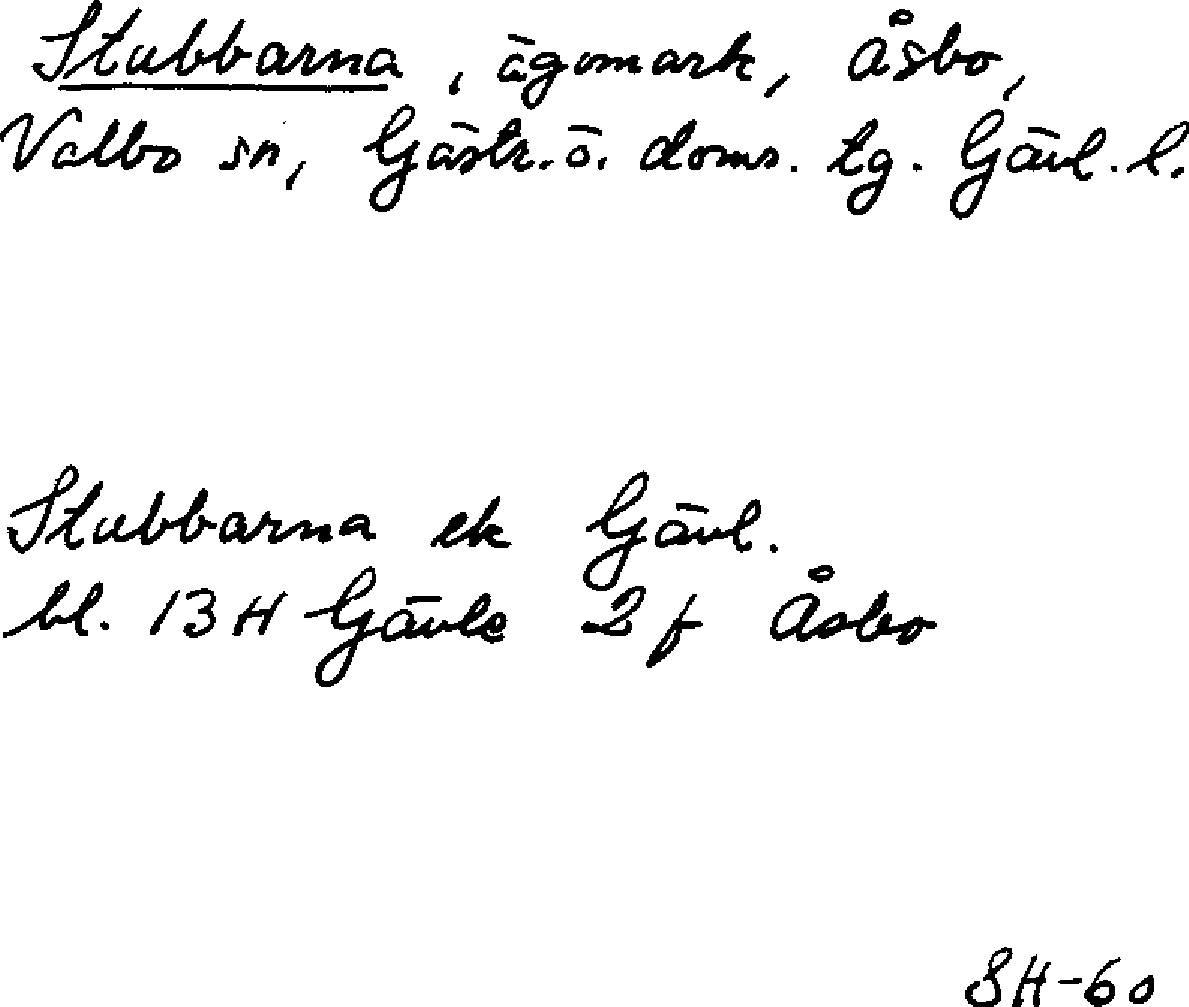 Stubbarna, ägomark, Åsbo,
Valbo sn, Gästr. ö. doms. tg. Gävl. l.
Stubbarna ek Gävl.
bl. 13H Gävle 2f Åsbo
SH-60